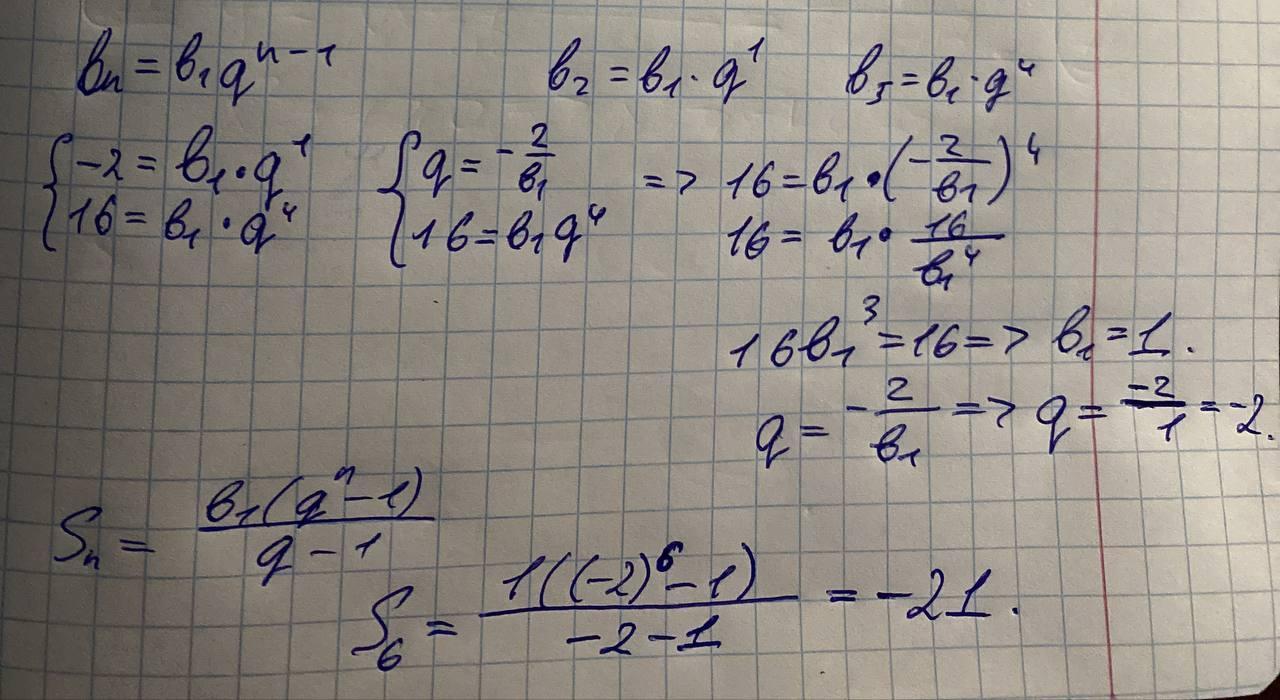 bₙ = b₁qⁿ⁻¹ b₂ = b₁ · q¹ b₅ = b₁ · q⁴
{ -2 = b₁ · q¹ { q = -2/b₁ => 16 = b₁ · (-2/b₁)⁴
16 = b₁ · q⁴ 16 = b₁q⁴ 16 = b₁ · 16/b₁⁴
16b₁³ = 16 => b₁ = 1.
q = -2/b₁ => q = -2/1 = -2.
Sₙ = b₁(qⁿ - 1)/q - 1
S₆ = 1((-2)⁶ - 1)/-2 - 1 = -21.